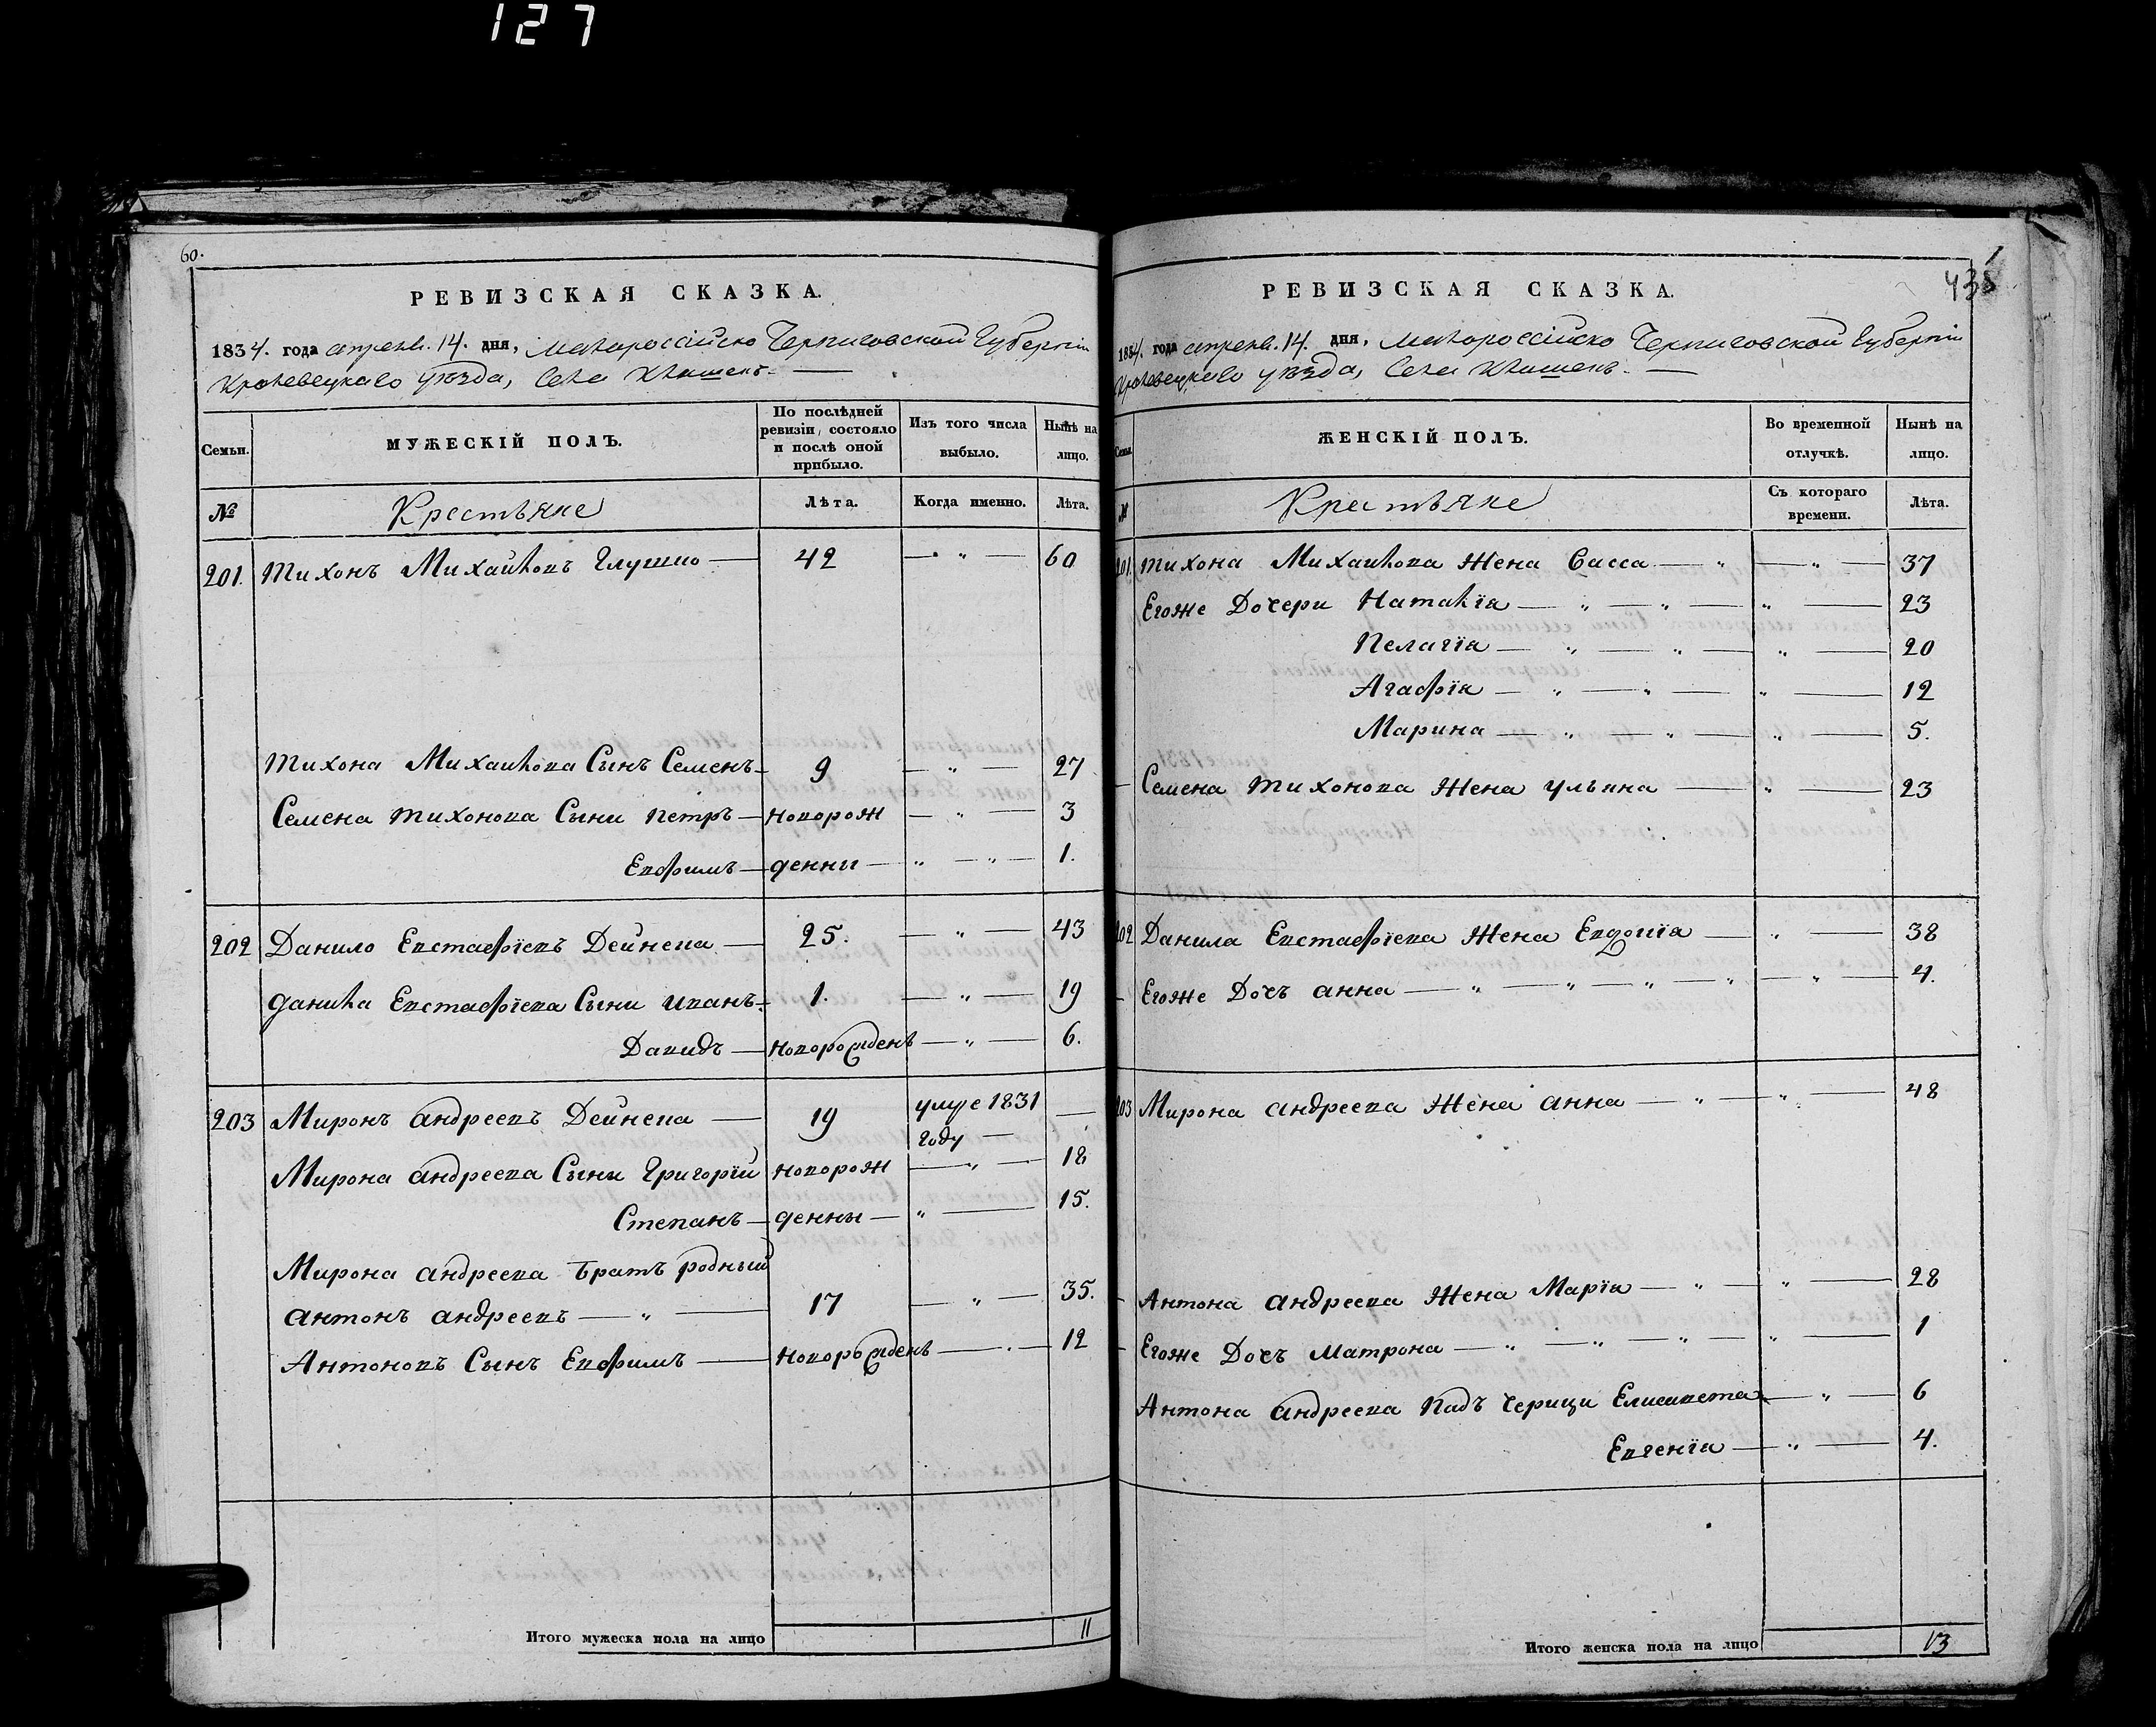 127
60.
РЕВИЗСКАЯ СКАЗКА.
1834. года апреля. 14. дня, Малороссійско Черниговской Губерніи
Кролевецкаго уѣзда, Села Клишекъ.
Семьи.
МУЖЕСКІЙ ПОЛЪ.
По послѣдней ревизіи, состояло и послѣ оной прибыло.
Изъ того числа выбыло.
Нынѣ на лицо.
№
Крестьяне
Лѣта.
Когда именно.
Лѣта.
201. Тихонъ Михайловъ Глушко — 42 — " — 60
Тихона Михайлова Сынъ Семенъ — 9 — " — 27
Семена Тихонова Сыни Петръ — новорож — " — 3
Евфимъ — денни — " — " — 1.
202 Данило Евстафіевъ Дейнека — 25. — " — 43
Данила Евстафіева Сыни Иванъ — 1. — " — 19
Давидъ — новорожденъ — " — 6.
203 Миронъ Андреевъ Дейнека — 19 умре 1831 —
году —
Мирона Андреева Сыни Григорій новорож — " — 18
Степанъ — денны — " — 15.
Мирона Андреева Братъ родный
Антонъ Андреевъ — " — 17 — " — 35.
Антоновъ Сынъ Евфимъ — новорожденъ — " — 12
Итого мужеска пола на лицо 11
РЕВИЗСКАЯ СКАЗКА.
1834. года апреля. 14. дня, Малороссійско Черниговской Губерніи
Кролевецкаго уѣзда, Села Клишекъ.
Семьи.
ЖЕНСКІЙ ПОЛЪ.
Во временной отлучкѣ.
Нынѣ на лицо.
№
Крестьяне
Съ котораго времени.
Лѣта.
201. Тихона Михайлова Жена Васса — " — " — 37
Егоже Дочери Наталія — " — " — " — 23
Пелагія — " — " — " — 20
Агафія — " — " — " — 12
Марина — " — " — " — 5.
Семена Тихонова Жена Ульяна — " — 23
202 Данила Евстафіева Жена Евдокія — " — 38
Егоже Дочъ Анна — " — " — " — " — " — 4.
203 Мирона Андреева Жена Анна — " — " — 48
Антона Андреева Жена Марія — " — " — 28
Егоже Дочъ Матрона — " — " — " — " — 1
Антона Андреева Падъчерици Елисавета — " — 6
Евгенія — " — 4.
Итого женска пола на лицо 13